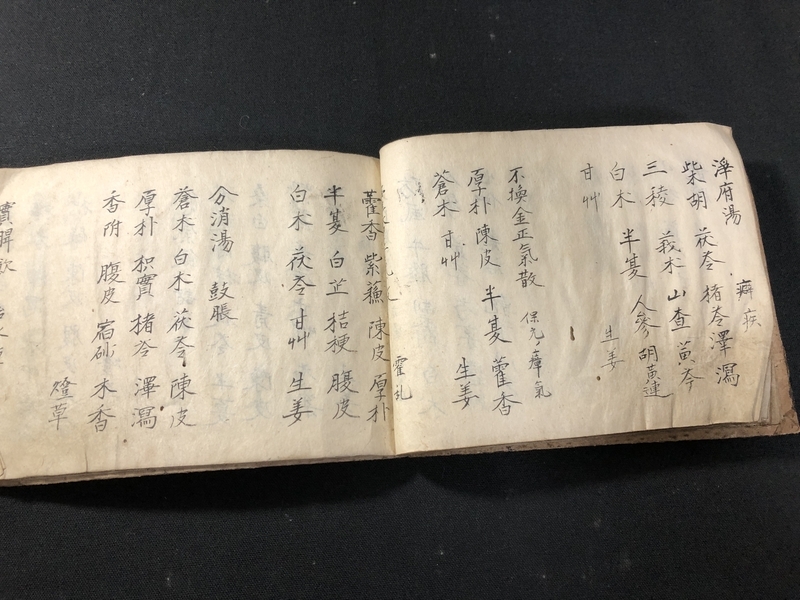 淨府湯 癖疾
柴胡 茯苓 猪苓 澤瀉
三稜 莪朮 山査 黄芩
白朮 半夏 人參 胡黄連
甘艸 生姜
不換金正氣散 保九ノ瘴氣
厚朴 陳皮 半夏 藿香
蒼朮 甘艸 生姜
霍乱
藿香 紫蘓 陳皮 厚朴
半夏 白芷 桔梗 腹皮
白朮 茯苓 甘艸 生姜
分消湯 鼓脹
蒼朮 白朮 茯苓 陳皮
厚朴 枳實 猪苓 澤瀉
香附 腹皮 宿砂 木香
燈草
實脾飲